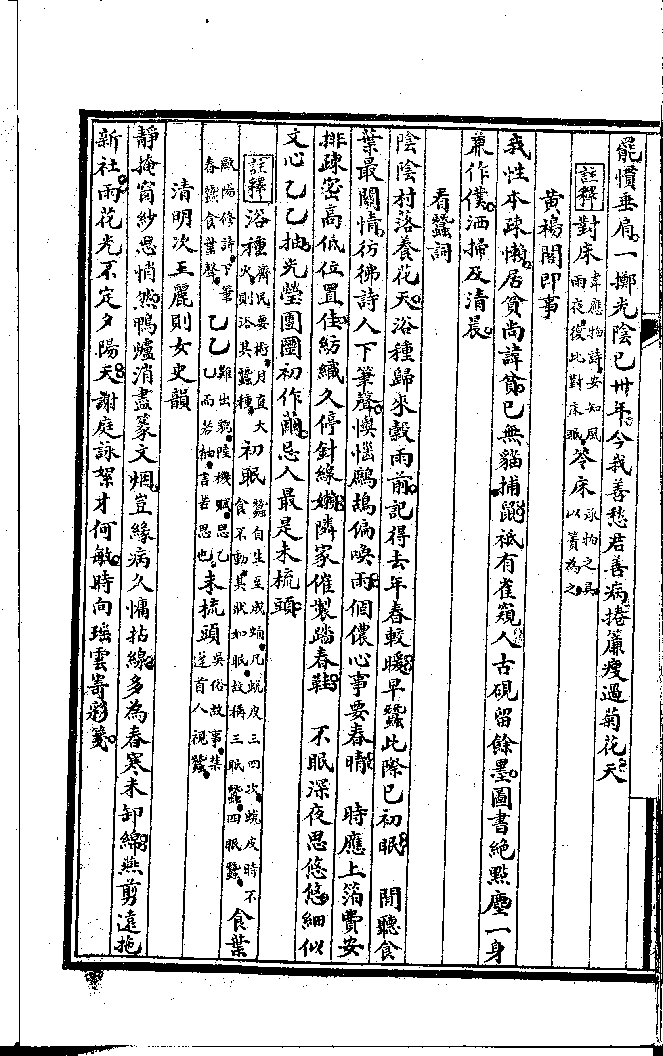 罷慣垂肩一擲光陰已卅年今我善愁君善病捲簾瘦過菊花天
註釋對床韋應物詩安知風雨夜復此對床眠笭床承物之具以簀為之
黃楊閣即事
我性本疎懶居貧尚諱節已無貓捕鼠祗有雀窺人古硯留餘墨圖書絶點塵一身
兼作僕洒掃及清晨
看蠶詞
陰陰村落養花天浴種歸來穀雨前記得去年春較暖早蠶此際已初眠 閒聽食
葉最關情彷彿詩人下筆聲懊惱鷓鴣偏喚雨個儂心事要春晴 時應上箔費安
排疎密高低位置佳紡織久停針線嬾隣家催製踏春鞋 不眠深夜思悠悠細似
文心乙乙抽光瑩團圞初作繭忌人最是未梳頭
註釋浴種齊民要術月直大火則浴其蠶種初眠蠶自生至成蛹凡蛻皮三四次蛻皮時不食不動其狀如眠故稱三眠蠶四眠蠶食葉
歐陽修詩下筆春蠶食葉聲乙乙難出貌陸機賦思乙乙而若抽言苦思也未梳頭吳俗故事集逆首人視蠶
清明次王麗則女史韻
靜掩窗紗思悄然鴨爐消盡篆文烟豈緣病久慵拈線多為春寒未卸綿燕剪遠拖
新社雨花光不定夕陽天謝庭詠絮才何敏時向瑤雲寄彩箋